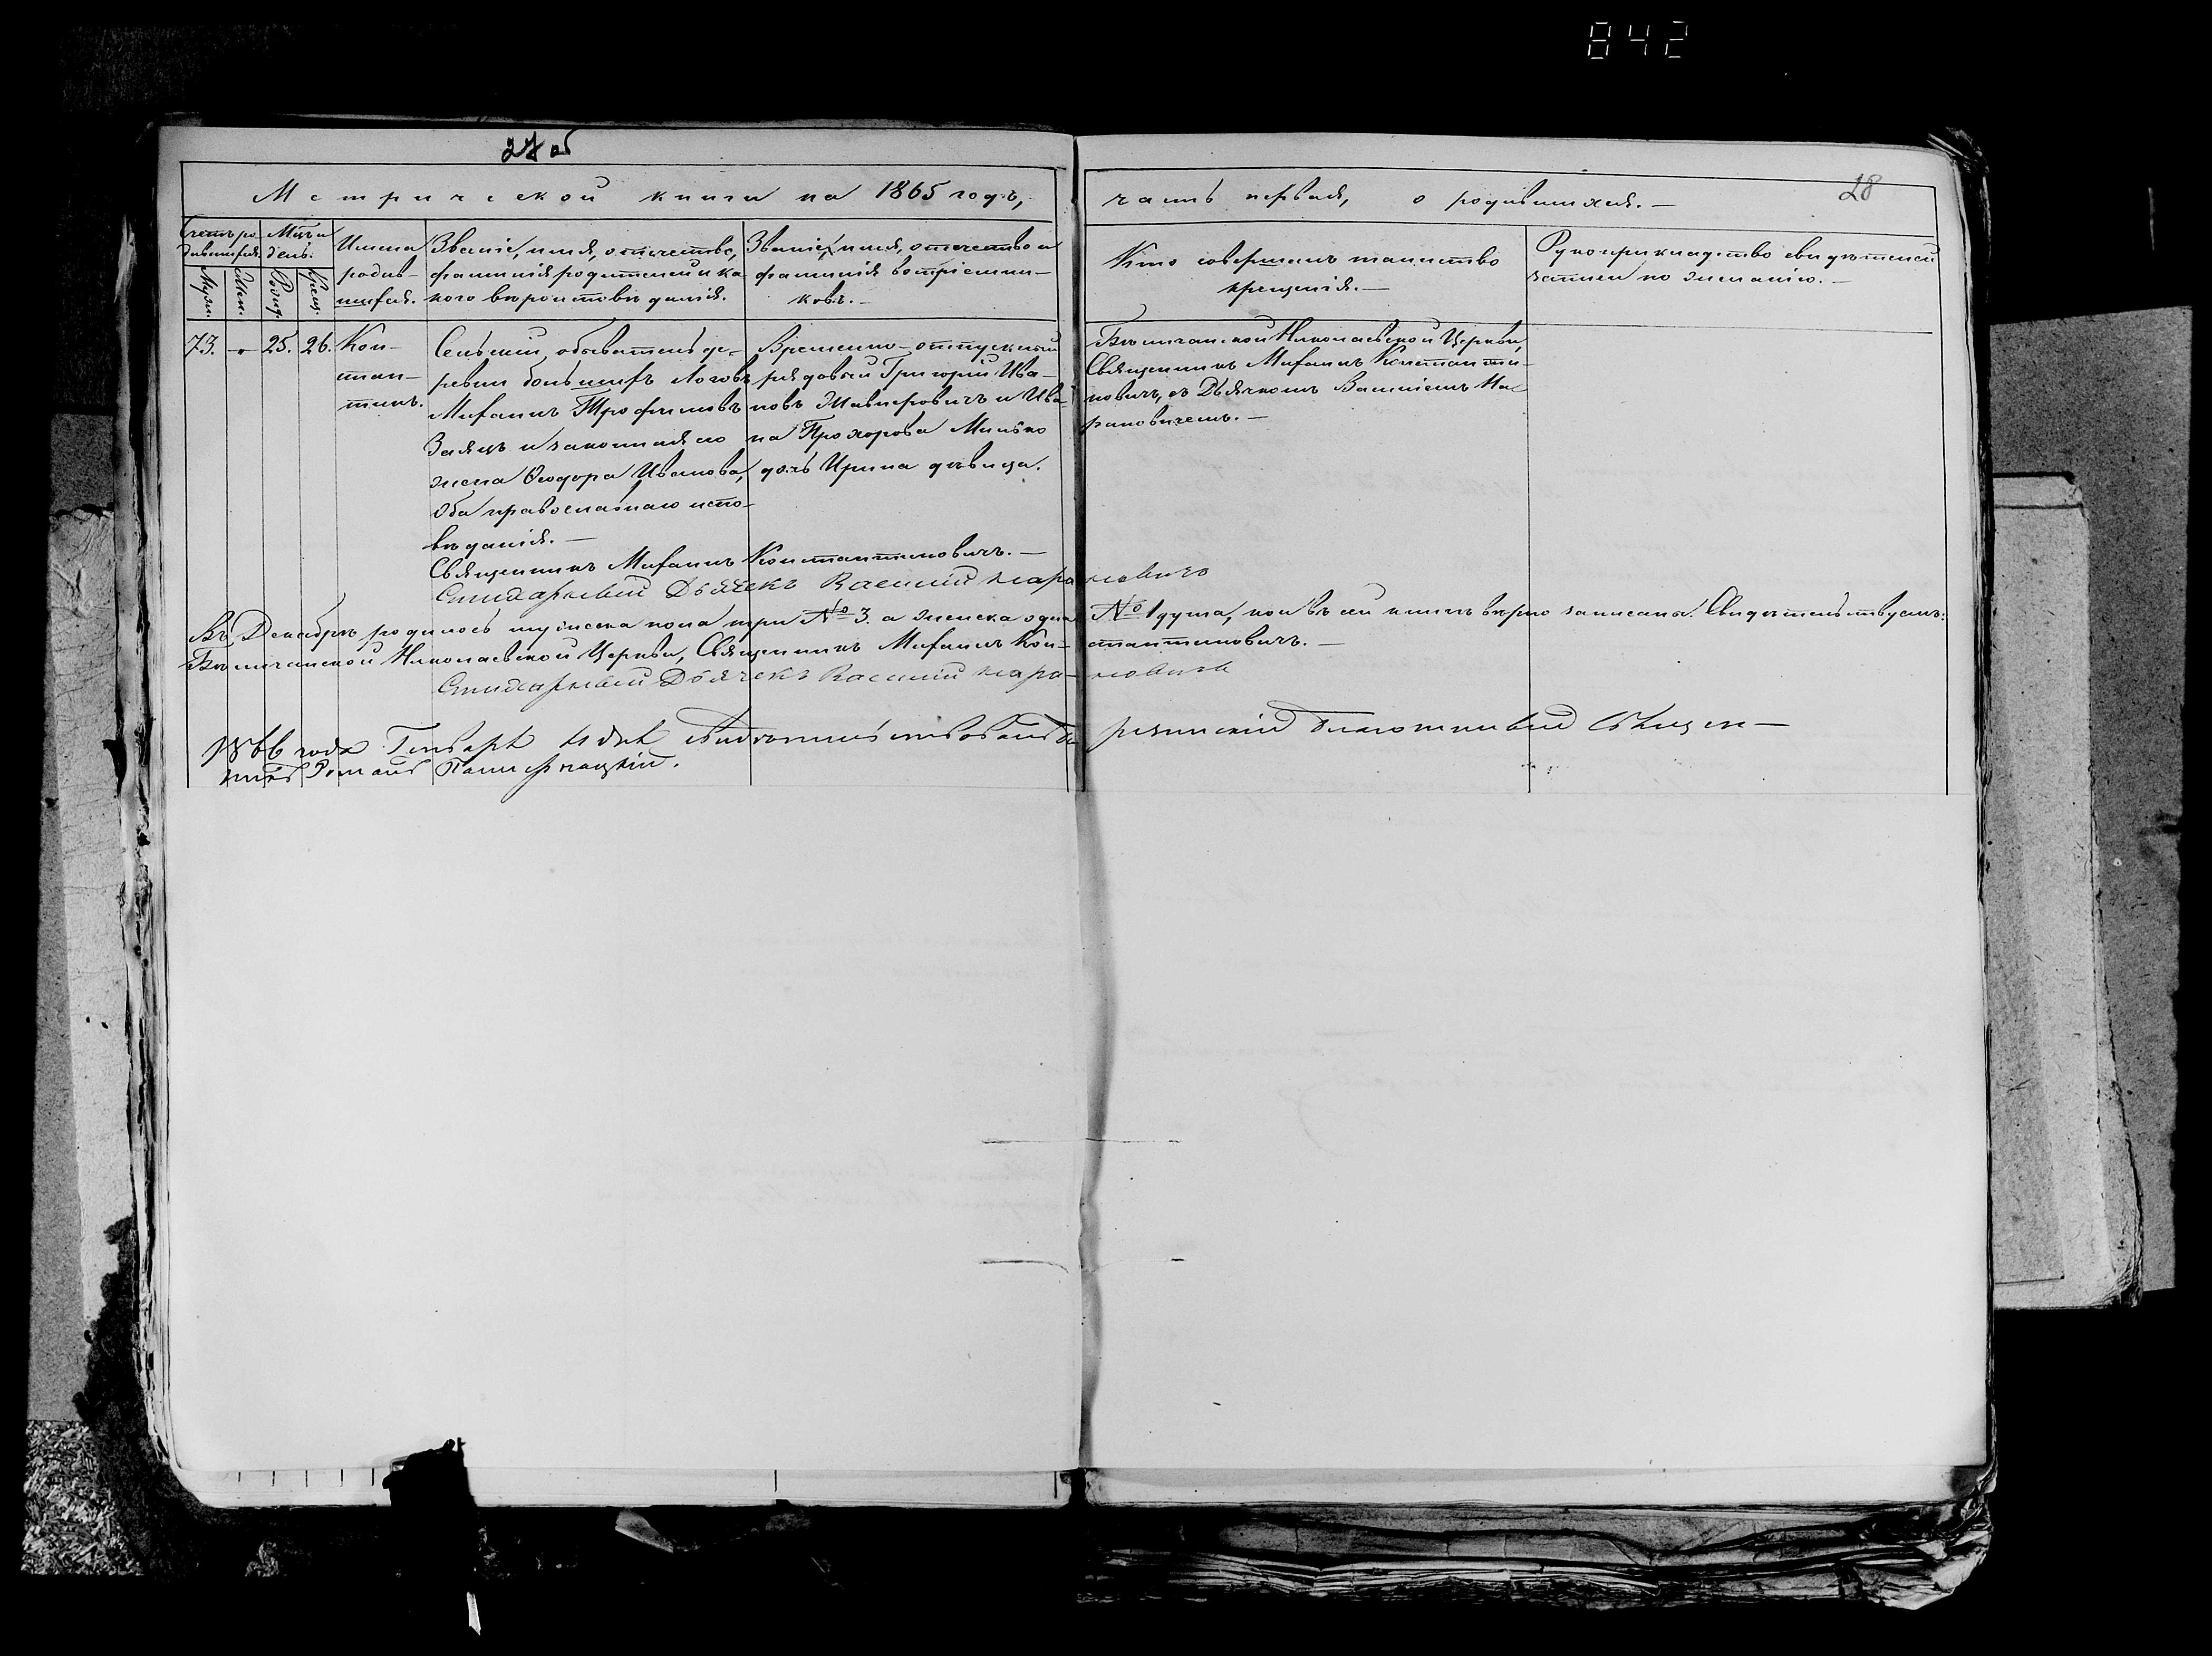 842
27 об
28
Метрической книги на 1865 годъ,
часть первая, о родившихся. —
Счетъ ро-
дившихся.
Муж.
Жен.
Мѣц. и
день.
Рожд.
Крещ.
Имена
родив-
шихся.
Званіе, имя, отчество,
фамилія родителей и ка
кого вѣроисповѣданія.
Званіе, имя, отчество и
фамилія воспріемни-
ковъ. —
Кто совершалъ таинство
крещенія. —
Рукоприкладство свидѣтелей
записи по желанію. —
73.
25.
26.
Кон-
стан-
тинъ.
Сельскій обыватель де-
ревни большихъ Логовъ
Михаилъ Трофимовъ
Заяцъ и законная его
жена Ѳеодора Иванова,
оба православнаго испо-
вѣданія. —
Временно-отпускный
рядовый Григорій Ива-
новъ и Ива-
на Прохорова Милько
дочь Ирина дѣвица.
Николаевской Церкви,
Священникъ Михаилъ Константи-
новичъ, съ Дьячкомъ Василіемъ Ма-
рановичемъ. —
Священникъ Михаилъ Константиновичъ. —
Стихарный Дьячекъ Василій Марановичъ
Въ Декабрѣ родилось мужеска пола три № 3. а женска одна № 1 душа, кои въ сей книгѣ вѣрно записаны. Свидѣтельствуемъ:
Николаевской Церкви, Священникъ Михаилъ Константиновичъ. —
Стихарный Дьячекъ Василій Марановичъ
1866 года Генваря дня свидѣтельствовалъ Благочинный Священ-
никъ Романъ